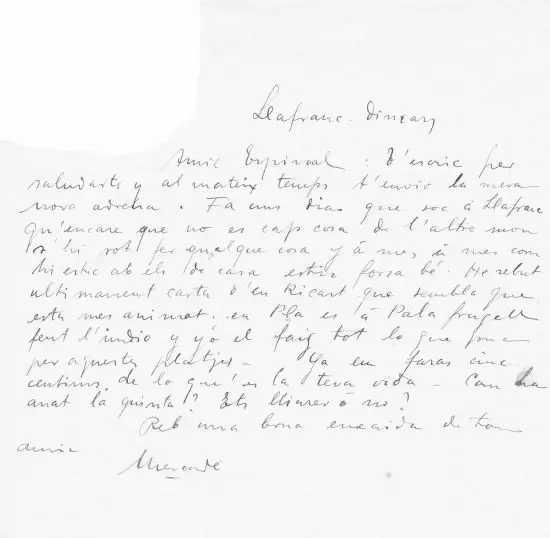 Llafranc. Dimars
Amic Espinal: T'escric per
saludarte y al mateix temps t'envio la meva
nova adresa. Fa uns dias que soc á Llafranc
qu'encare que no es cap cosa de l'altre mon
s'hi pot fer qualque cosa y á mes á mes com
hi estic ab els de casa estic forsa bé. He rebut
ultimament carta d'en Ricart que sembla que
esta mes animat. en Pla es á Palafrugell
fent l'indio y yo el faig tot lo que puc
per aquestas platjes - Ya em faras cinc
centims de lo qu'es la teva vida - Com ha
anat la quinta? Ets lliure ó no?
Reb una bona encaixda de ton
amic